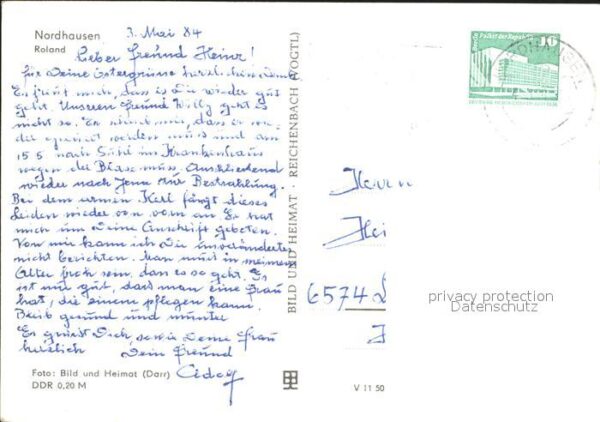 Nordhausen
Roland
3. Mai 84
Lieber Freund Heinz!
für Deine Ostergrüsse herzlichen Dank
Es freut mich, dass es Dir wieder gut
geht. Unserem Freund Willy geht es
nicht so. Er schrieb mir, dass er wie-
der operiert werden muss und am
15 5 nach Suhl im Krankenhaus
wegen der Blase muss. Anschliessend
wieder nach Jena zur Bestrahlung.
Bei dem armen Kerl fängt dieses
Leiden wieder von vorn an Er hat
mich um Deine Anschrift gebeten.
Von mir kann ich Dir unverändertes
nicht berichten. Man muss in meinem
Alter froh sein, dan es so geht. Es
ist nur gut, dass man eine Frau
hat, die einem pflegen kann.
Bleib gesund und munter
Es grüsst Dich, sowie Deine Frau
herzlich Dein Freund
Foto: Bild und Heimat (Darr)
DDR 0,20 M
BILD UND HEIMAT · REICHENBACH (VOGTL)
V 11 50
Palast der Republik
16
Herrn
Hei
6574
privacy protection
Datenschutz